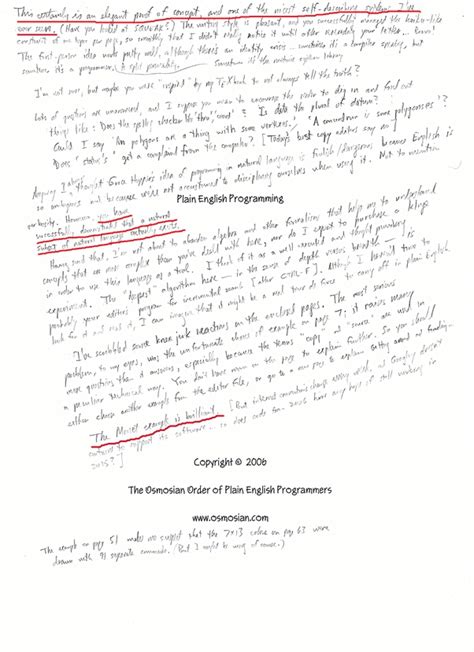 This certainly is an elegant proof of concept, and one of the nicest self-describing systems I've
ever seen. (Have you looked at SQUEAK?) The writing style is pleasant, and you successfully managed the haiku-like
constraint of one per page, so smoothly that I didn't really notice it until after rereading your letter. Bravo!
The first-person idea works pretty well, although there's an identity crisis — sometimes it's a computer speaking, but
sometimes it's a programmer. A split personality. Sometimes it's the
I'm not sure, but maybe you were "inspired" by my TeXbook to not always tell the truth?
Lots of questions are unanswered, and I suppose you want to encourage the reader to dig in and find out
things like: Does the spelling checker like
Could I say "An polygons are a thing with some vertices."
Does "status's" get a complaint from the computer? [Today's best copy editors say no]
Anyway I always thought Grace Hopper's idea of programming in natural language is foolish/dangerous because English is
so ambiguous and because we're not accustomed to disciplining ourselves when using it. Not to mention
Plain English Programming
ambiguity. However, you have
successfully demonstrated that a natural
subset of natural language actually exists.
Having said that, I'm not about to abandon algebra and other formalisms that help me to understand
concepts that are more complex than you've dealt with here, nor do I expect to purchase a
in order to use their language as a tool. I think of it as a well worked and thought provoking
experiment. The "deepest" algorithm here — in the sense of depth versus breadth — is
probably your editor's program for incremental search [after CTRL-F]. Although I
look for it and read it, I can imagine that it might be a real tour de force to carry off in plain English.
I've scribbled some knee jerk reactions on the enclosed pages. The most serious
problem, to my eyes, was the unfortunate choice of example on page 7; it raises many
more questions than it answers, especially because the terms "copy" and "source" are used in
a peculiar technical way. You don't have room on the page to explain further. So you should
either choose another example from the editor file, or go to a page to explain
The Mosel example is brilliant. [But internet conventions change every week, as Google doesn't
contract to support its software — so does code from 2005 have any hope of still working in
2015?]
Copyright © 2006
The Osmosian Order of Plain English Programmers
www.osmosian.com
The example on page 51 makes me suspect that the 7×13 cobra on page 63 were
drawn with 91 separate commands. (But I might be wrong of course.)